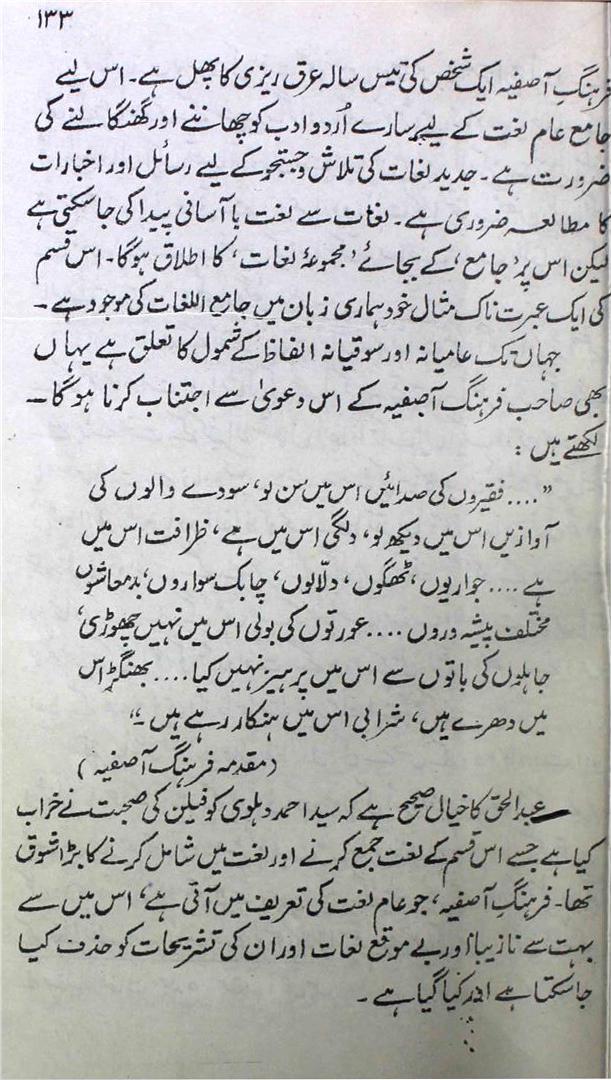 ۱۳۳
فرہنگِ آصفیہ ایک شخص کی تیس سالہ عرق ریزی کا پھل ہے۔ اس لیے
جامع عام لغت کے لیے سارے اُردو ادب کو چھاننے اور کھنگالنے کی
ضرورت ہے۔ جدید لغات کی تلاش و جستجو کے لیے رسائل اور اخبارات
کا مطالعہ ضروری ہے۔ لغات سے لغت بآسانی پیدا کی جا سکتی ہے
لیکن اس پر 'جامع' کے بجائے 'مجموعۂ لغات' کا اطلاق ہوگا۔ اس قسم
کی ایک عبرت ناک مثال خود ہماری زبان میں جامع اللغات کی موجود ہے۔
جہاں تک عامیانہ اور سوقیانہ الفاظ کے شمول کا تعلق ہے یہاں
بھی صاحب فرہنگ آصفیہ کے اس دعویٰ سے اجتناب کرنا ہوگا۔
لکھتے ہیں :
"۔۔۔۔ فقیروں کی صدائیں اس میں سن لو، سودے والوں کی
آوازیں اس میں دیکھ لو، دلگی اس میں ہے، ظرافت اس میں
ہے ۔۔۔۔ جواریوں، ٹھگوں، دلّالوں، چابک سواروں، بدمعاشوں
مختلف پیشہ وروں ۔۔۔۔ عورتوں کی بولی اس میں نہیں چھوڑی،
جاہلوں کی باتوں سے اس میں پرہیز نہیں کیا ۔۔۔۔ بھنگڑ اس
میں دھرے ہیں، شرابی اس میں ہنکار رہے ہیں۔"
(مقدمہ فرہنگ آصفیہ)
عبدالحق کا خیال صحیح ہے کہ سید احمد دہلوی کو فیلن کی صحبت نے خراب
کیا ہے جسے اس قسم کے لغت جمع کرنے اور لغت میں شامل کرنے کا بڑا شوق
تھا۔ فرہنگِ آصفیہ، جو عام لغت کی تعریف میں آتی ہے، اس میں سے
بہت سے نازیبا اور بے موقع لغات اور ان کی تشریحات کو حذف کیا
جا سکتا ہے اور کیا گیا ہے۔